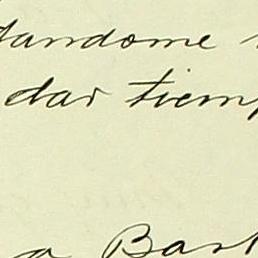 tandome
dar tiemp
a Bart